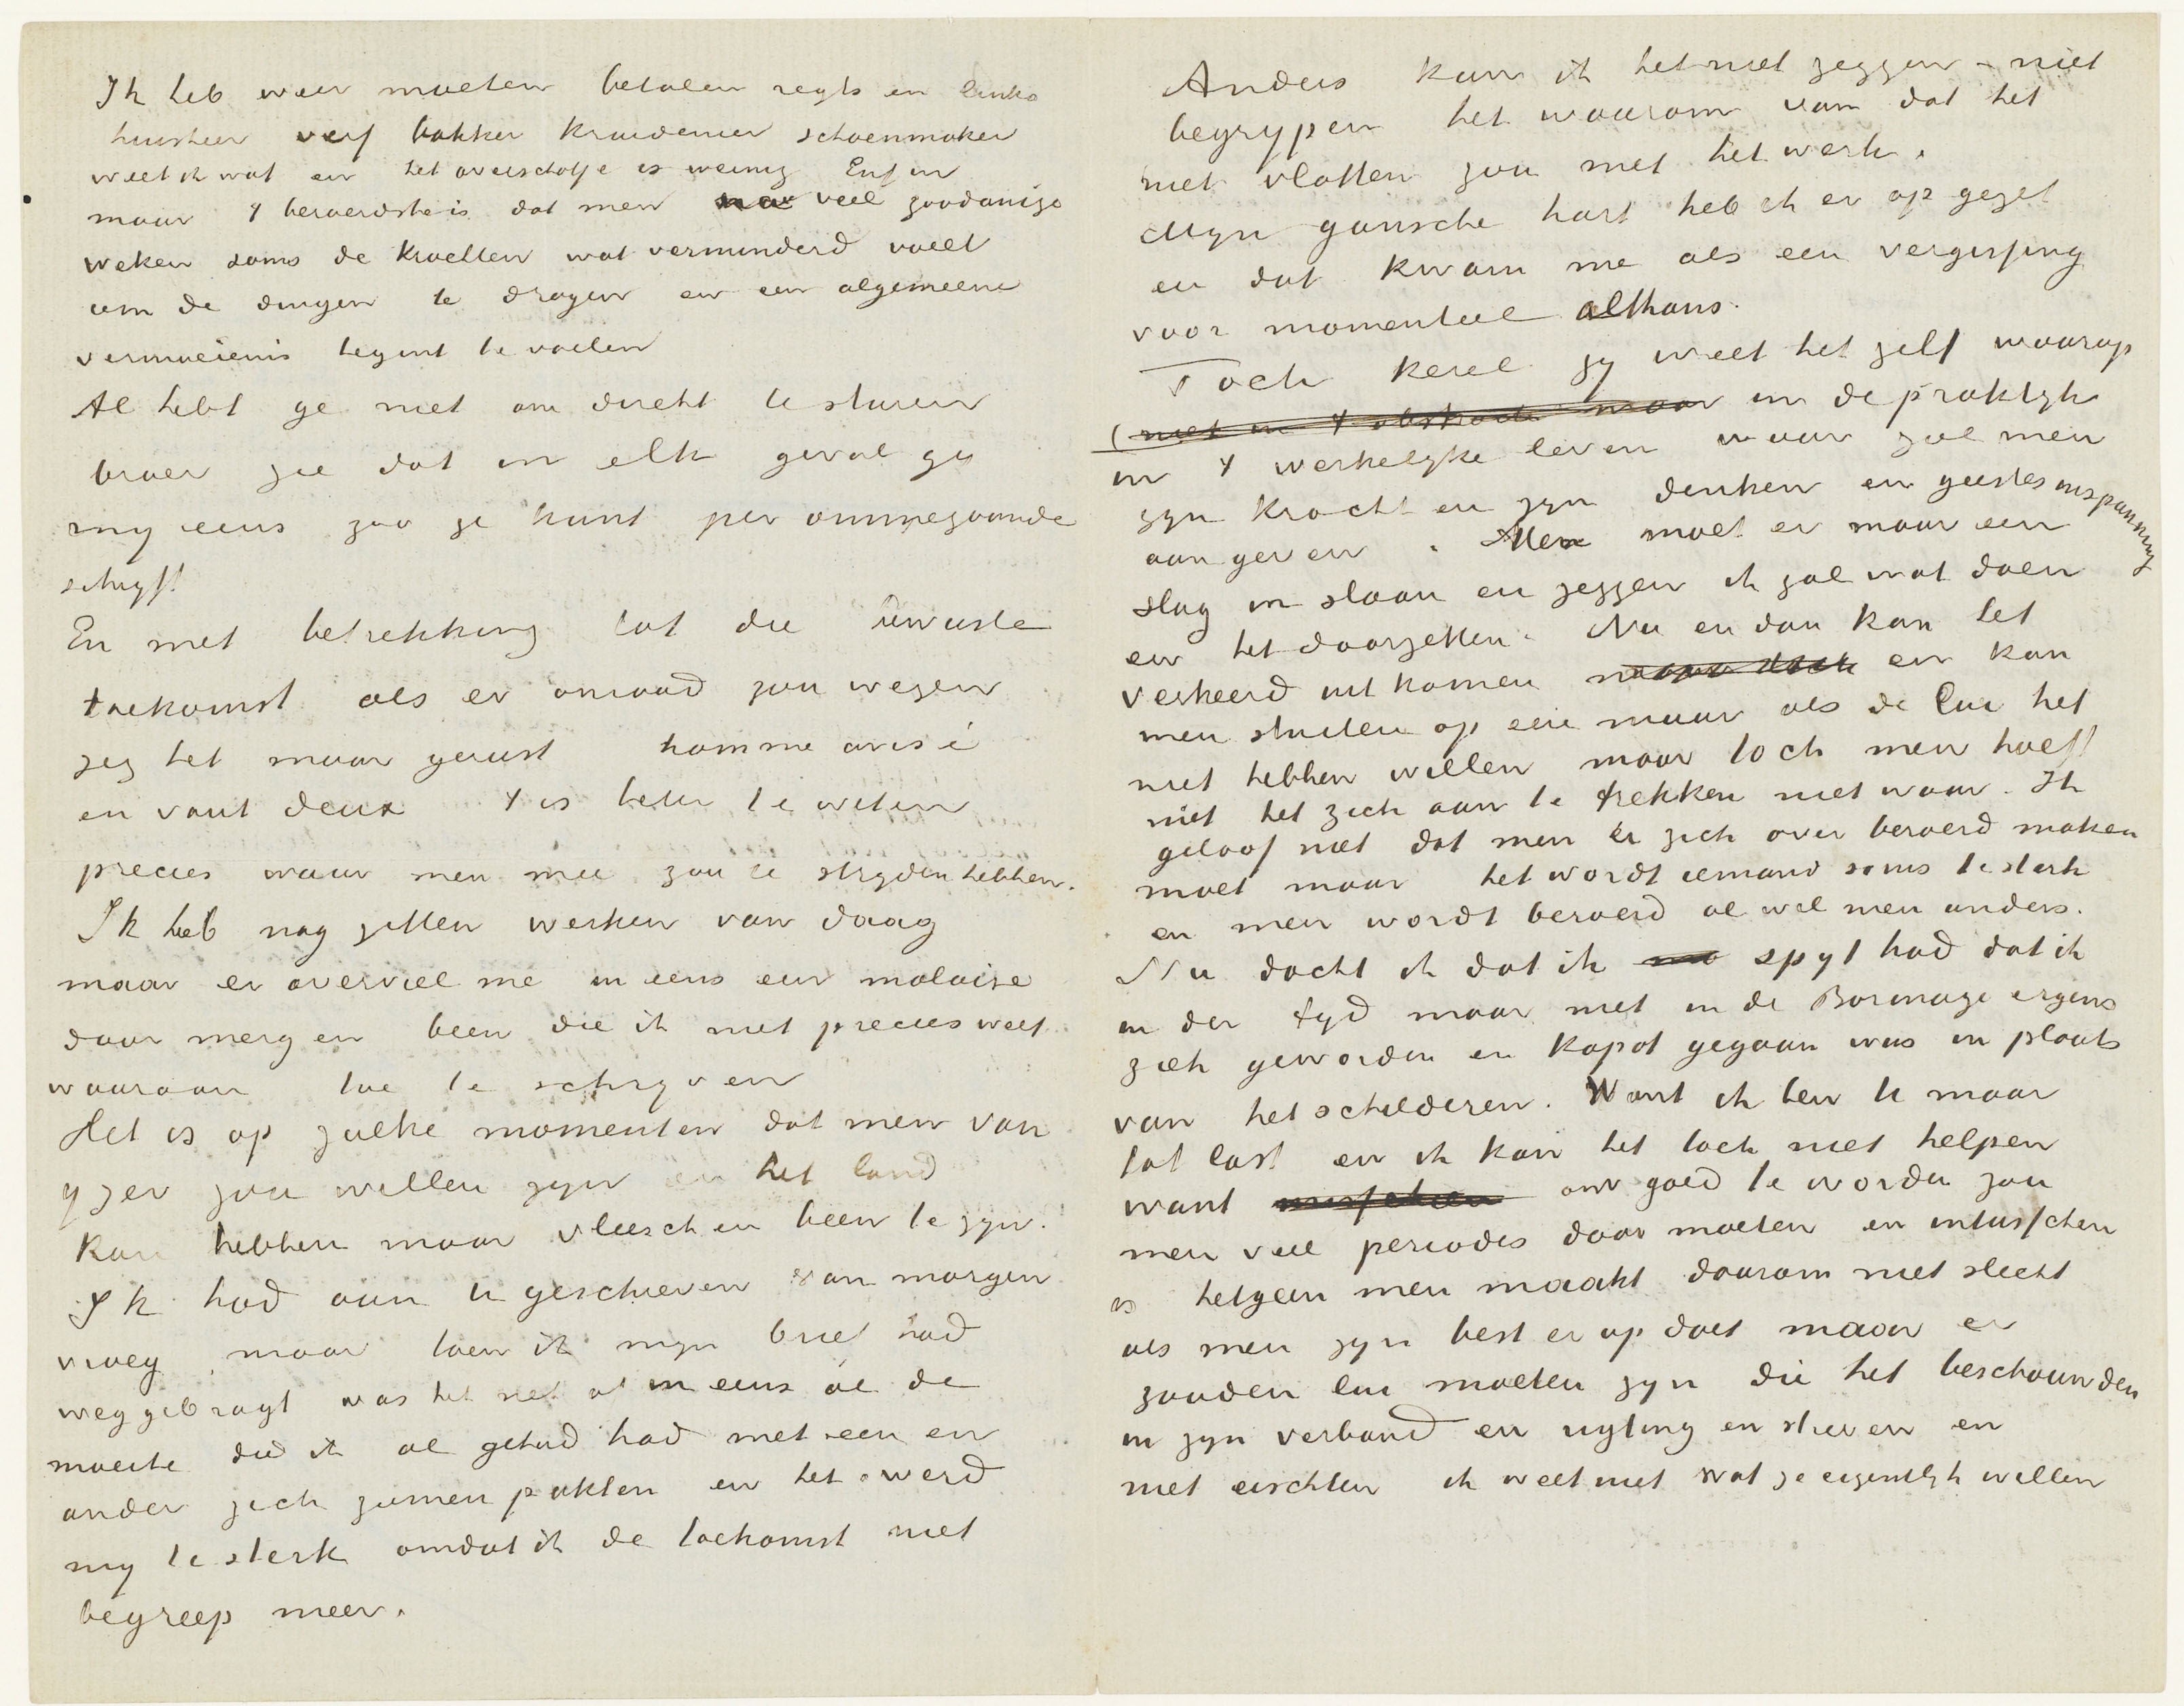 Ik heb weer moeten betalen regts en links
huisheer verf bakker kruidenier schoenmaker
weet ik wat en het overschotje is weinig Enfin
maar 't beroerdste is dat men na veel zoodanige
weken soms de krachten wat verminderd voelt
om de dingen te dragen en een algemeene
vermoeienis begint te voelen
Al hebt ge niet om direkt te sturen
broer zie dat in elk geval gij
mij eens zoo ge kunt per ommegaande
schrijft.
En met betrekking tot die bewuste
toekomst als er onraad zou wezen
zeg het maar gerust homme avisé
en vaut deux 't is beter te weten
precies waar men mee zou te strijden hebben.
Ik heb nog zitten werken van daag
maar er overviel me in eens een malaise
door merg en been die ik niet precies weet
waaraan toe te schrijven
Het is op zulke momenten dat men van
ijzer zou willen zijn en het land
kan hebben maar vleesch en been te zijn.
Ik had aan u geschreven van morgen
vroeg maar toen ik mijn brief had
weggebragt was het net of in eens al de
moeite die ik al gehad had met een en
ander zich zamen pakten en het werd
mij te sterk omdat ik de toekomst niet
begreep meer.
Anders kan ik het niet zeggen – niet
begrijpen het waarom van dat het
niet vlotten zou met het werk.
Mijn gansche hart heb ik er op gezet
en dat kwam me als een vergissing
voor momenteel althans.
Toch kerel gij weet het zelf waarop
(niet in 't abstrakte maar in de praktijk
in 't werkelijke leven waar zal men
zijn kracht en zijn denken en geestesinspanning
aan geven. Men moet er maar een
slag in slaan en zeggen ik zal wat doen
en het doorzetten. Nu en dan kan het
verkeerd uitkomen maar toch en kan
men stuiten op een muur als de lui het
niet hebben willen maar toch men hoeft
niet het zich aan te trekken niet waar. Ik
geloof niet dat men er zich over beroerd maken
moet maar het wordt iemand soms te sterk
en men wordt beroerd al wil men anders.
Nu dacht ik dat ik spijt had dat ik
in der tijd maar niet in de Borinage ergens
ziek geworden en kapot gegaan was in plaats
van het schilderen. Want ik ben u maar
tot last en ik kan het toch niet helpen
want misschien om goed te worden zou
men veel periodes door moeten en intusschen
is hetgeen men maakt daarom niet slecht
als men zijn best er op doet maar er
zouden lui moeten zijn die het beschouwden
in zijn verband en rigting en streven en
niet eischten ik weet niet wat ze eigentlijk willen